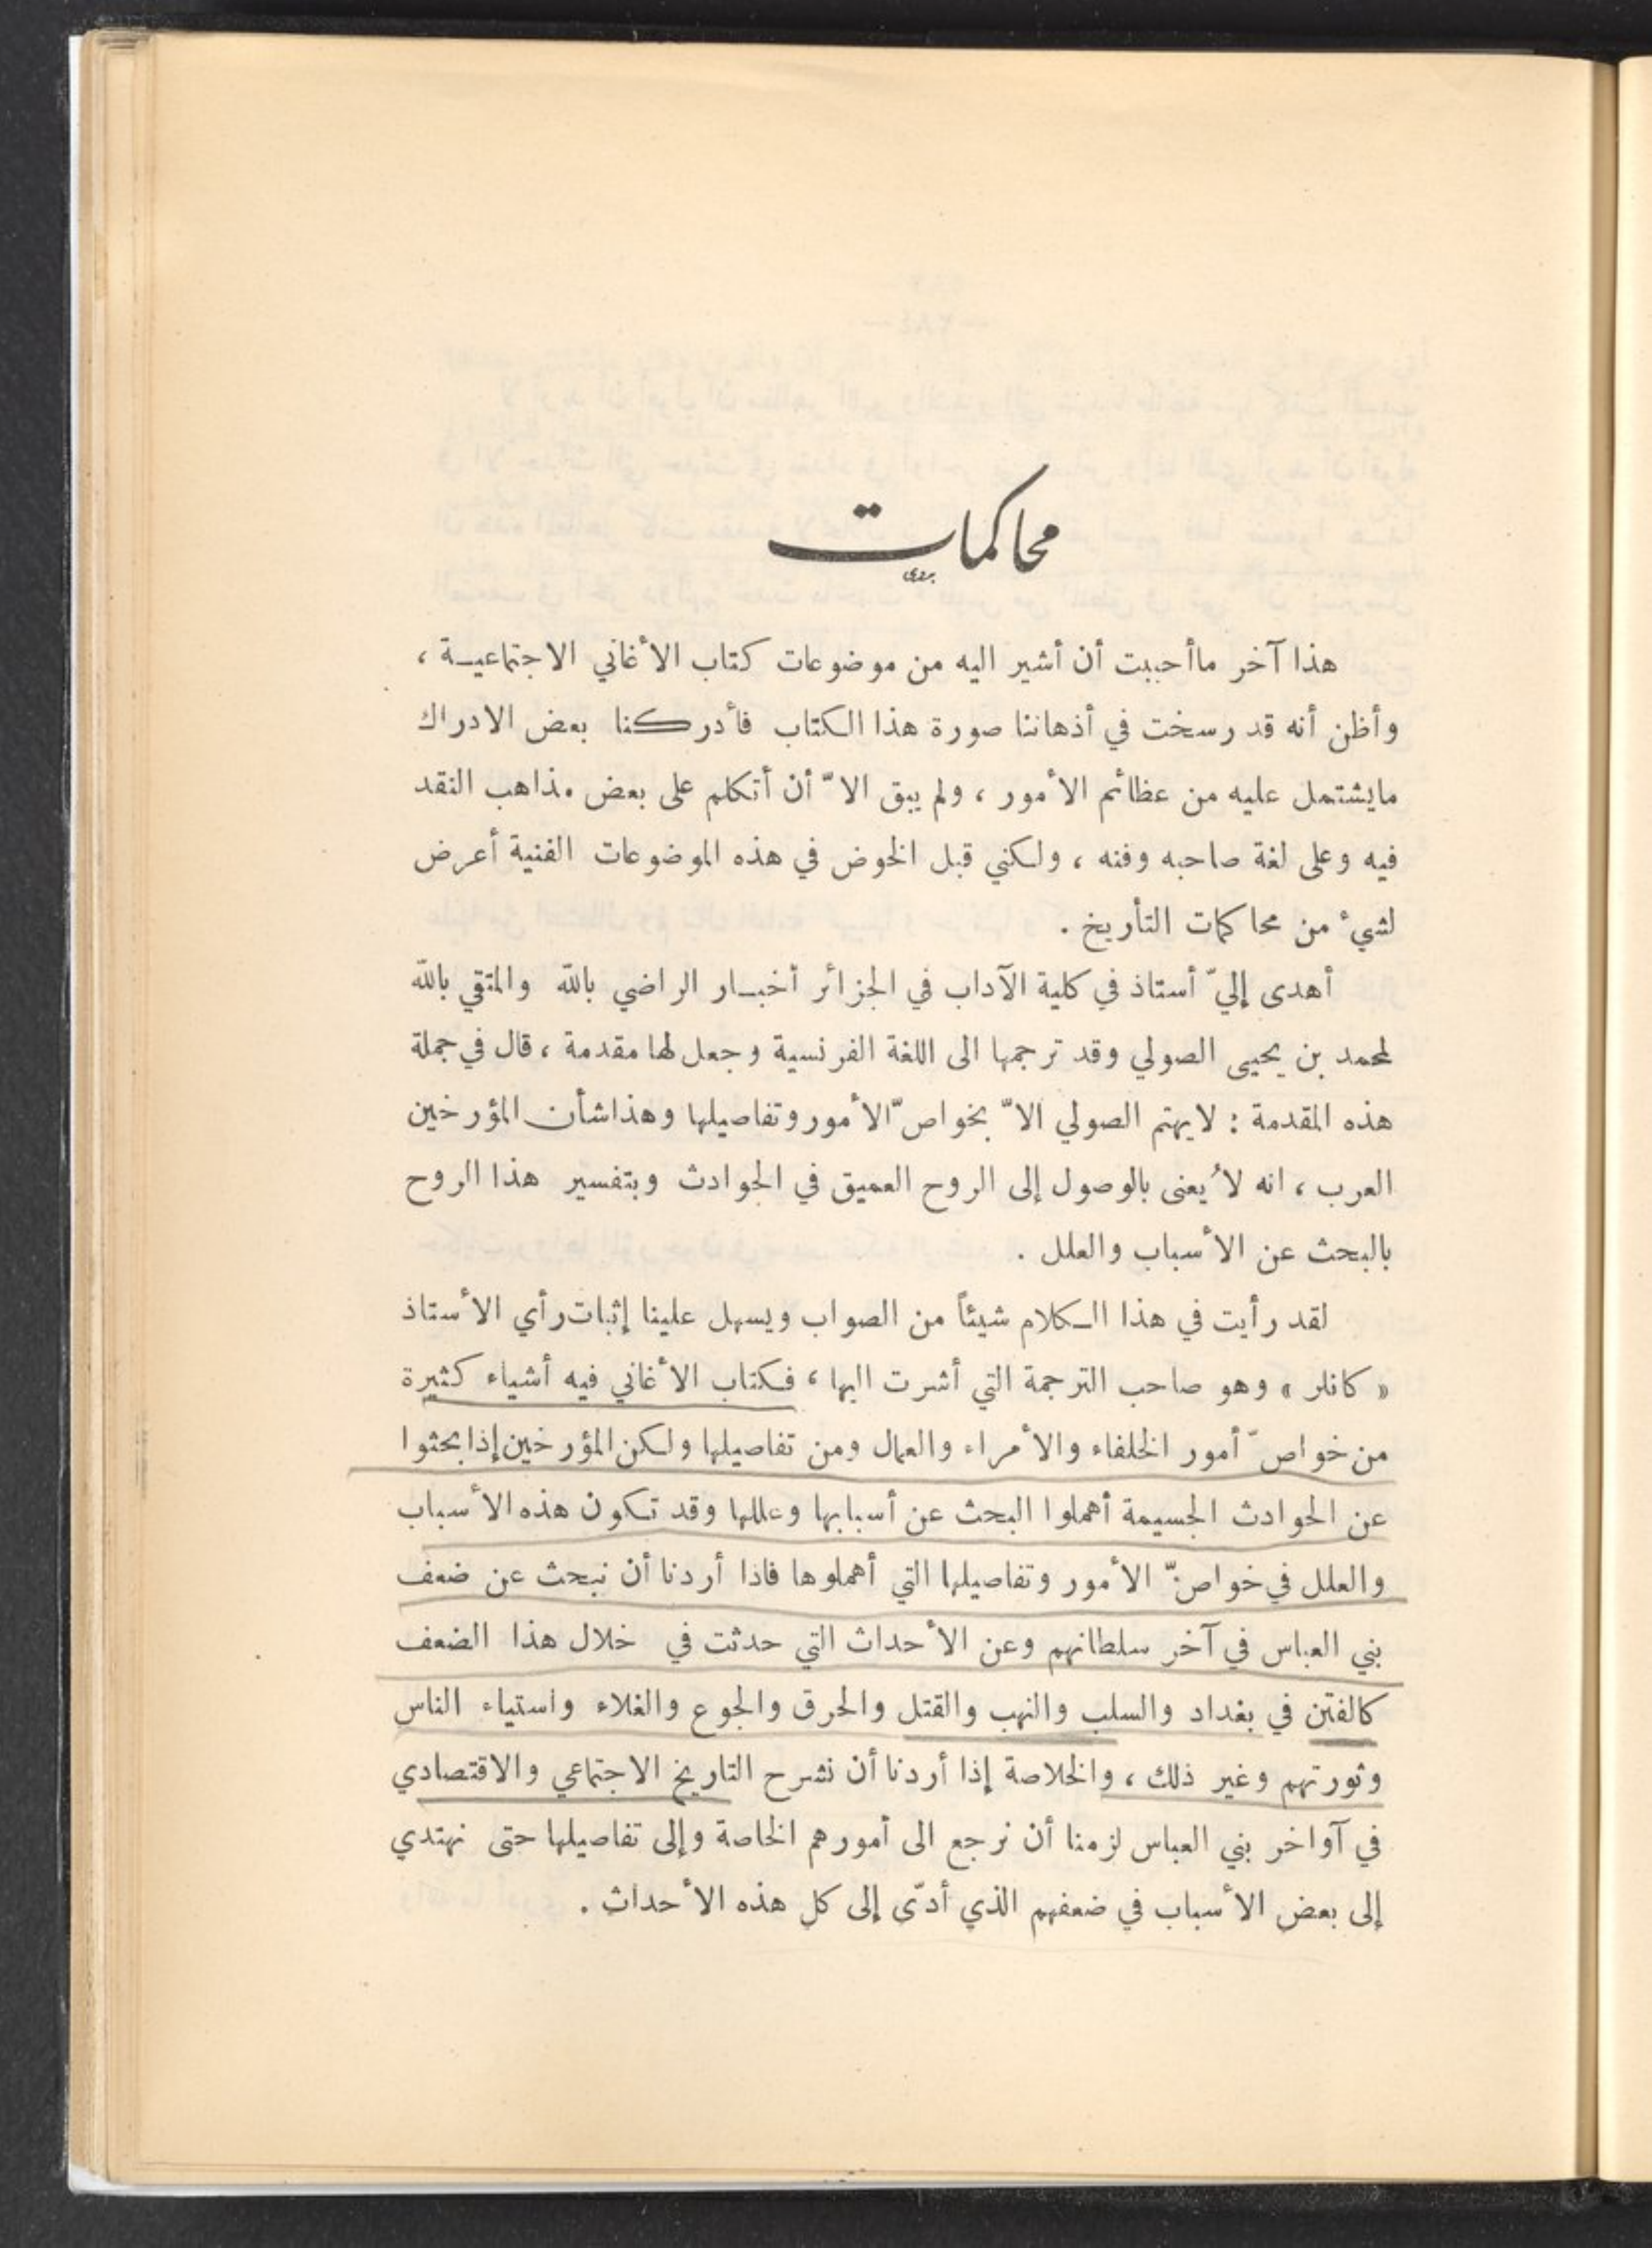 محاكمات
هذا آخر ماأحببت أن أشير اليه من موضوعات كتاب الأغاني الاجتماعيـة ،
وأظن أنه قد رسخت في أذهاننا صورة هذا الكتاب فأدركنا بعض الادراك
مايشتمل عليه من عظائم الأمور ، ولم يبق الاّ أن أتكلم على بعض مذاهب النقد
فيه وعلى لغة صاحبه وفنه ، ولكني قبل الخوض في هذه الموضوعات الفنية أعرض
لشيء من محاكمات التأريخ .
أهدى إليّ أستاذ في كلية الآداب في الجزائر أخبـار الراضي بالله والمتقي بالله
لمحمد بن يحيى الصولي وقد ترجمها الى اللغة الفرنسية وجعل لها مقدمة ، قال في جملة
هذه المقدمة : لايهتم الصولي الاّ بخواصّ الأمور وتفاصيلها وهذا شأن المؤرخين
العرب ، انه لا يُعنى بالوصول إلى الروح العميق في الحوادث وبتفسير هذا الروح
بالبحث عن الأسباب والعلل .
لقد رأيت في هذا الـكلام شيئاً من الصواب ويسهل علينا إثبات رأي الأستاذ
« كانلر » وهو صاحب الترجمة التي أشرت اليها ، فكتاب الأغاني فيه أشياء كثيرة
من خواصّ أمور الخلفاء والأمراء والعمال ومن تفاصيلها ولكن المؤرخين إذا بحثوا
عن الحوادث الجسيمة أهملوا البحث عن أسبابها وعللها وقد تكون هذه الأسباب
والعلل في خواصّ الأمور وتفاصيلها التي أهملوها فاذا أردنا أن نبحث عن ضعف
بني العباس في آخر سلطانهم وعن الأحداث التي حدثت في خلال هذا الضعف
كالفتن في بغداد والسلب والنهب والقتل والحرق والجوع والغلاء واستياء الناس
وثورتهم وغير ذلك ، والخلاصة إذا أردنا أن نشرح التاريخ الاجتماعي والاقتصادي
في آواخر بني العباس لزمنا أن نرجع الى أمورهم الخاصة وإلى تفاصيلها حتى نهتدي
إلى بعض الأسباب في ضعفهم الذي أدّى إلى كل هذه الأحداث .